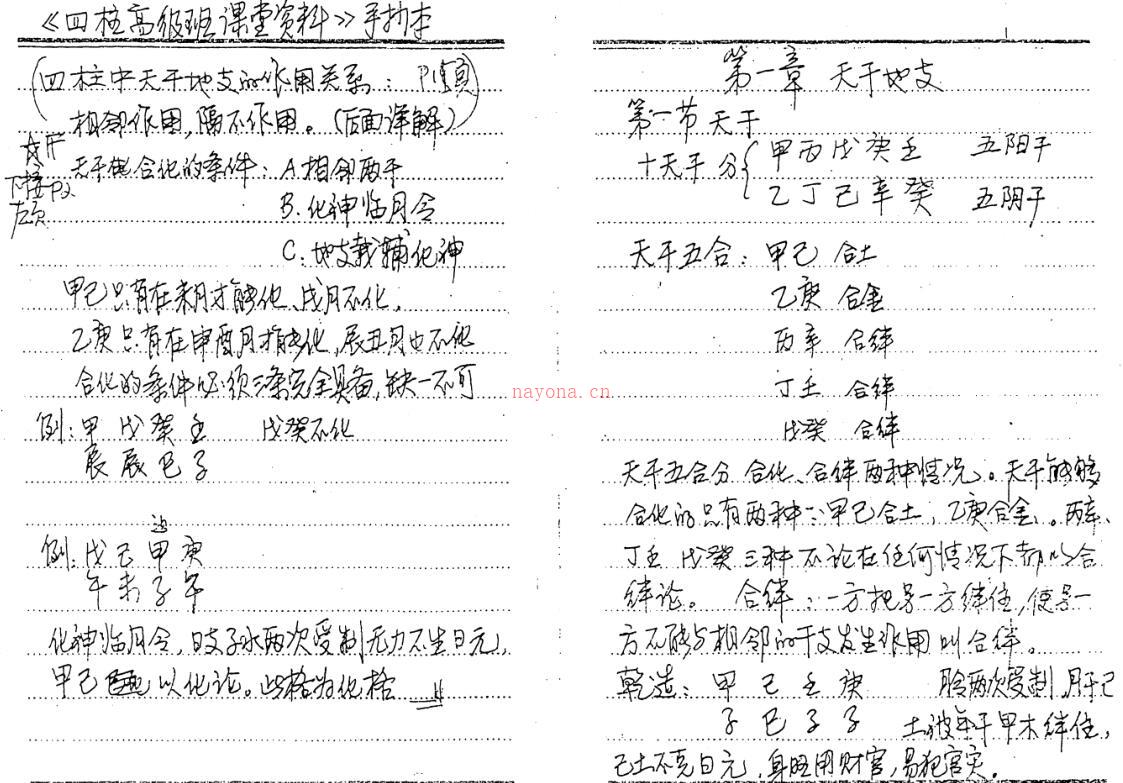 《四柱高级班课堂资料》手抄本
(四柱中天干地支的作用关系: P1页)
相邻作用,隔不作用。(后面详解)
下接P2
左页
天干 合化的条件: A相邻两干
B. 化神临月令
C. 地支载辅化神
甲己只有在未月才能化、戌月不化.
乙庚只有在申酉月才能化,辰丑月也不化
合化的条件必须三条完全具备,缺一不可
例:甲 戊 癸 壬 戊癸不化
辰 辰 巳 子
例:戊 己 甲 庚
午 未 子 午
化神临月令,日支子水两次受制无力不生日元,
甲己 以化论。此格为化格
第一章 天干地支
第一节 天干
十天干分{甲丙戊庚壬 五阳干
乙丁己辛癸 五阴干
天干五合:甲己 合土
乙庚 合金
丙辛 合绊
丁壬 合绊
戊癸 合绊
天干五合分 合化、合绊两种情况。天干能够
合化的只有两种:甲己合土,乙庚合金。丙辛、
丁壬 戊癸三种不论在任何情况下都以合
绊论。 合绊:一方把另一方绊住,使另一
方不能与相邻的干支发生作用叫合绊。
乾造: 甲 己 壬 庚 两次受制,月干己
子 巳 子 子 土被年干甲木绊住,
己土不克日元,身旺用财官,易犯官灾。
nayona.cn